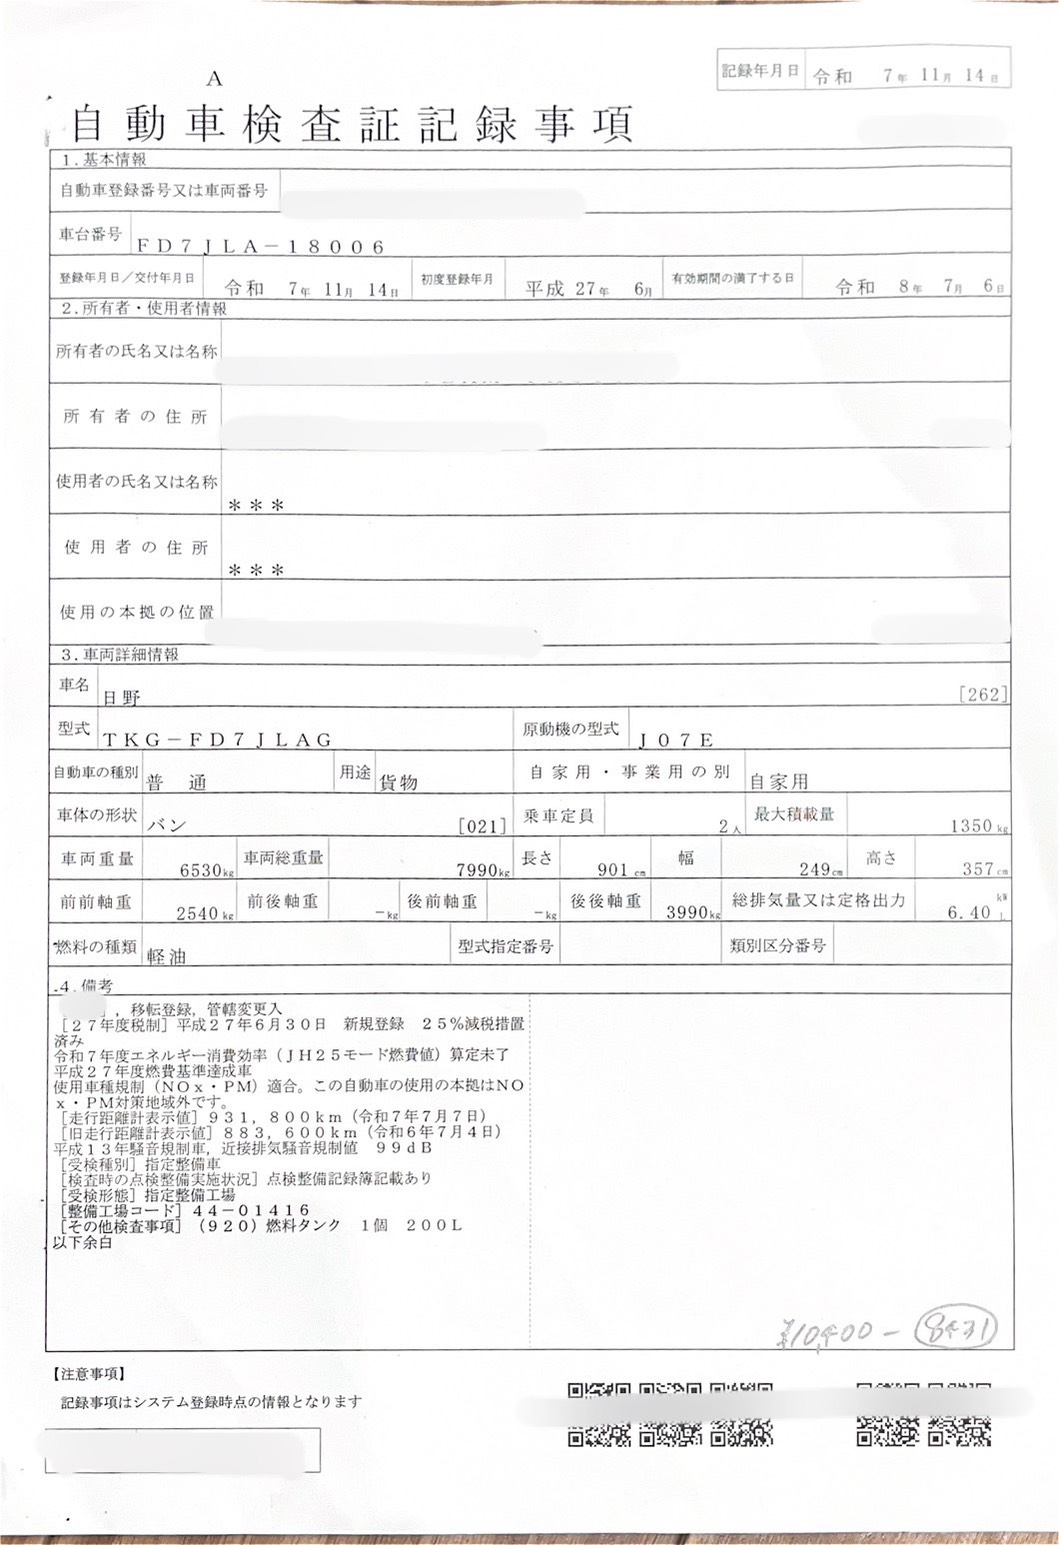 A
記録年月日 令和 7年 11月 14日
自動車検査証記録事項
1.基本情報
自動車登録番号又は車両番号
車台番号 FD7JLA-18006
登録年月日/交付年月日 令和 7年 11月 14日 初度登録年月 平成 27年 6月 有効期間の満了する日 令和 8年 7月 6日
2.所有者・使用者情報
所有者の氏名又は名称
所有者の住所
使用者の氏名又は名称 ***
使用者の住所 ***
使用の本拠の位置
3.車両詳細情報
車名 日野 [262]
型式 TKG-FD7JLAG 原動機の型式 J07E
自動車の種別 普通 用途 貨物 自家用・事業用の別 自家用
車体の形状 バン [021] 乗車定員 2人 最大積載量 1350kg
車両重量 6530kg 車両総重量 7990kg 長さ 901cm 幅 249cm 高さ 357cm
前前軸重 2540kg 前後軸重 -kg 後前軸重 -kg 後後軸重 3990kg 総排気量又は定格出力 6.40 kW L
燃料の種類 軽油 型式指定番号 類別区分番号
4.備考
,移転登録,管轄変更入
[27年度税制]平成27年6月30日 新規登録 25%減税措置
済み
令和7年度エネルギー消費効率(JH25モード燃費値)算定未了
平成27年度燃費基準達成車
使用車種規制(NOx・PM)適合。この自動車の使用の本拠はNO
x・PM対策地域外です。
[走行距離計表示値]931,800km(令和7年7月7日)
[旧走行距離計表示値]883,600km(令和6年7月4日)
平成13年騒音規制車,近接排気騒音規制値 99dB
[受検種別]指定整備車
[検査時の点検整備実施状況]点検整備記録簿記載あり
[受検形態]指定整備工場
[整備工場コード]44-01416
[その他検査事項](920)燃料タンク 1個 200L
以下余白
8431
【注意事項】
記録事項はシステム登録時点の情報となります